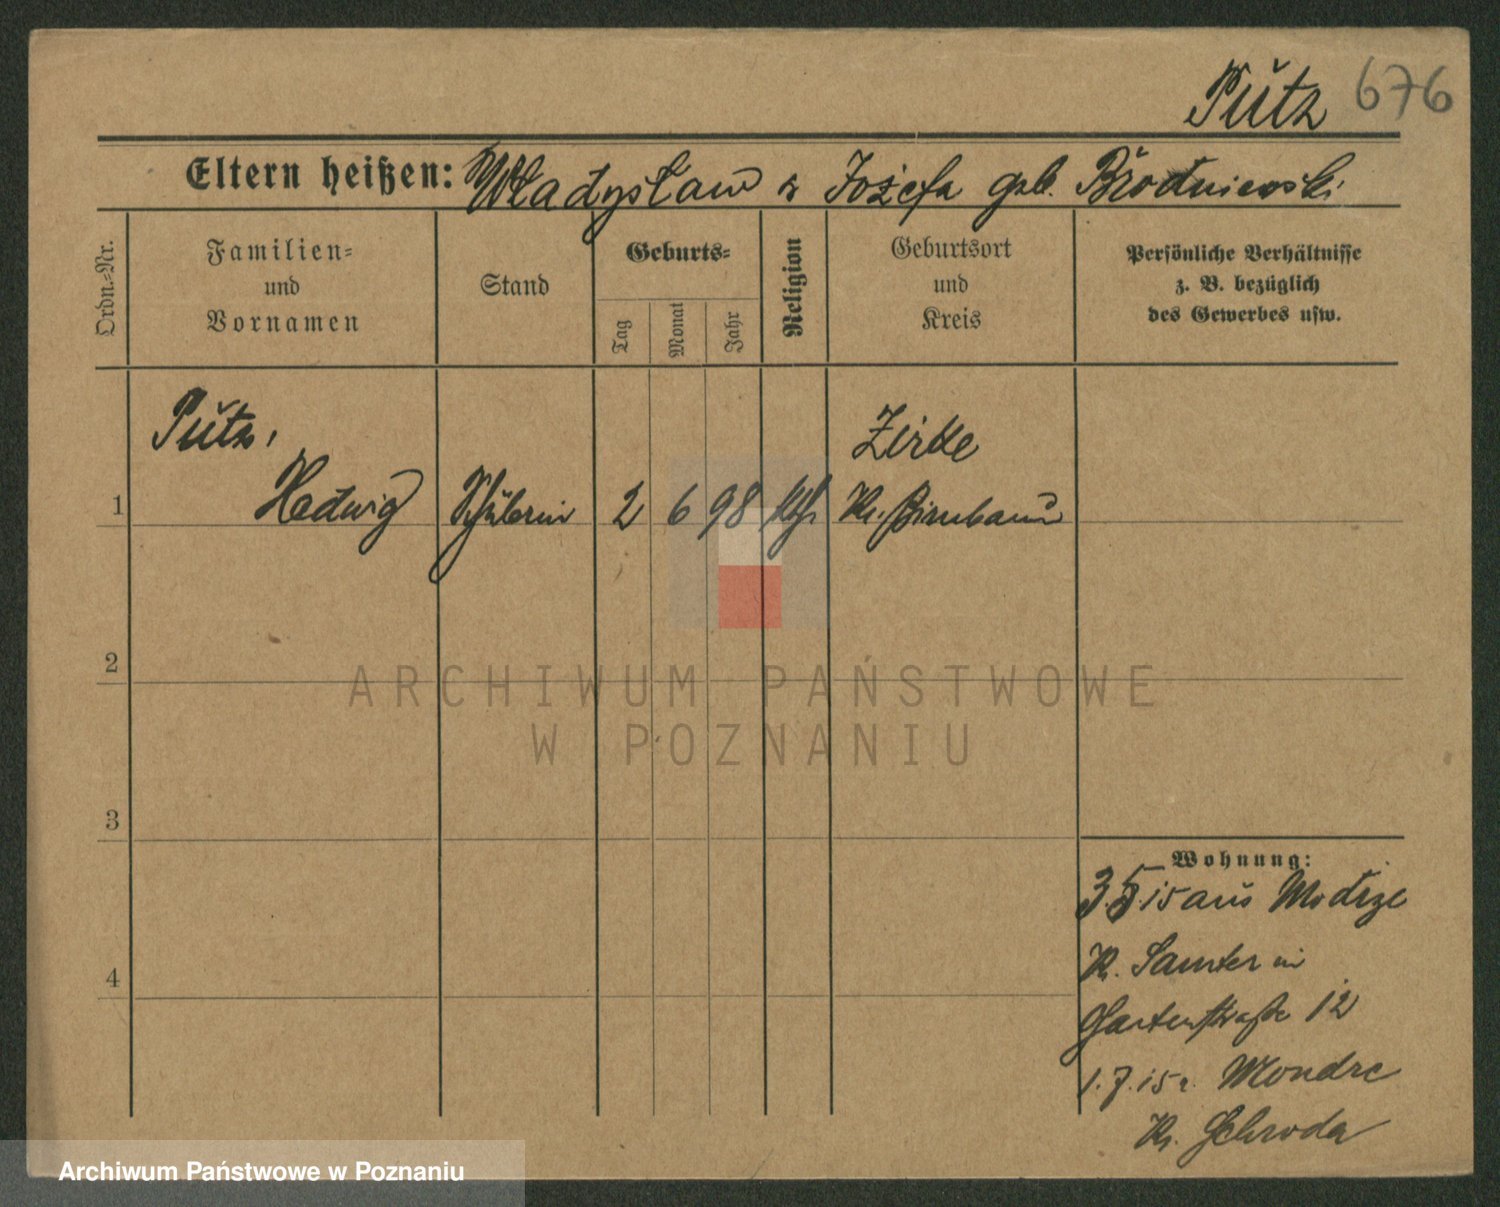 Pütz 676
Eltern heißen: Władysław & Józefa geb. Brodniewski
Ordn.-Nr.
Familien-
und
Vornamen
Stand
Geburts-
Tag
Monat
Jahr
Religion
Geburtsort
und
Kreis
Persönliche Verhältnisse
z. B. bezüglich
des Gewerbes usw.
Pütz,
Zirke
1 Hedwig Schülerin 2 6 98 kth Kr. Birnbaum
2
3
4
Wohnung:
3.5.15 aus Modrze
Kr. Samter in
Gartenstraße 12
1.7.15 n. Mondre
Kr. Schroda
ARCHIWUM PAŃSTWOWE
W POZNANIU
Archiwum Państwowe w Poznaniu